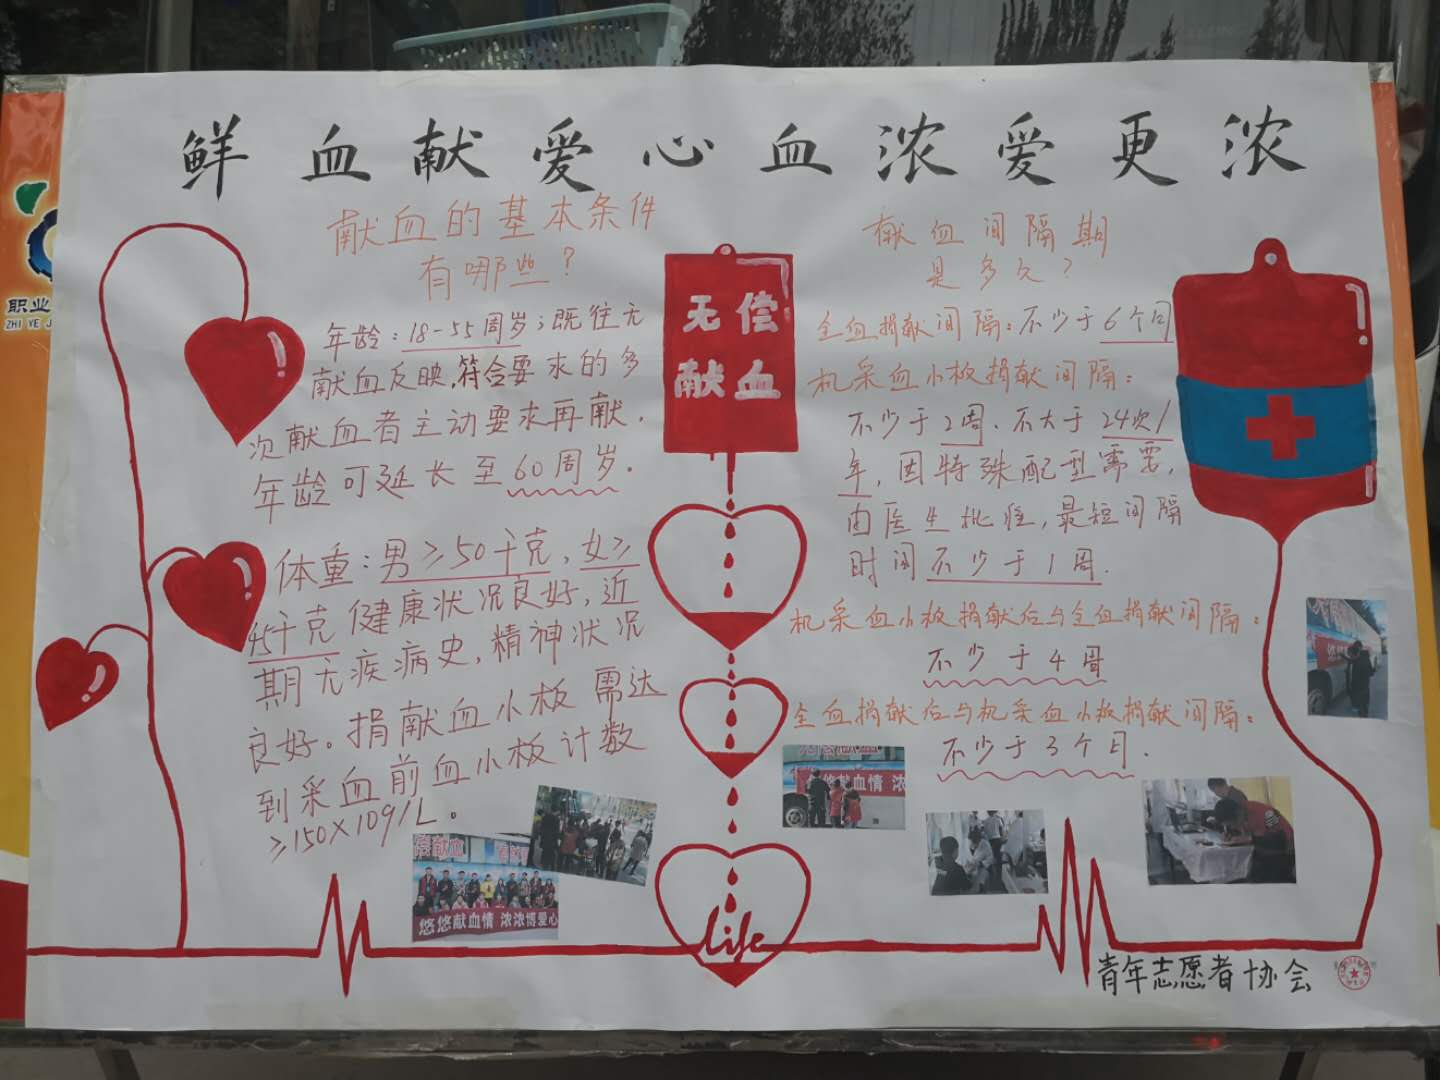 鲜血献爱心血浓爱更浓
献血的基本条件
有哪些？
年龄：18-55周岁；既往无
献血反映，符合要求的多
次献血者主动要求再献，
年龄可延长至60周岁。
体重：男≥50千克，女≥
45千克 健康状况良好，近
期无疾病史，精神状况
良好。捐献血小板 需达
到采血前血小板计数
≥150×109/L。
无偿
献血
life
献血间隔期
是多久？
全血捐献间隔：不少于6个月
机采血小板捐献间隔：
不少于2周、不大于24次/
年，因特殊配型需要，
由医生批准，最短间隔
时间不少于1周.
机采血小板捐献后与全血捐献间隔：
不少于4周
全血捐献后与机采血小板捐献间隔：
不少于3个月.
悠悠献血情 浓浓博爱心
悠献血情 浓
青年志愿者协会
职业
ZHI YE J